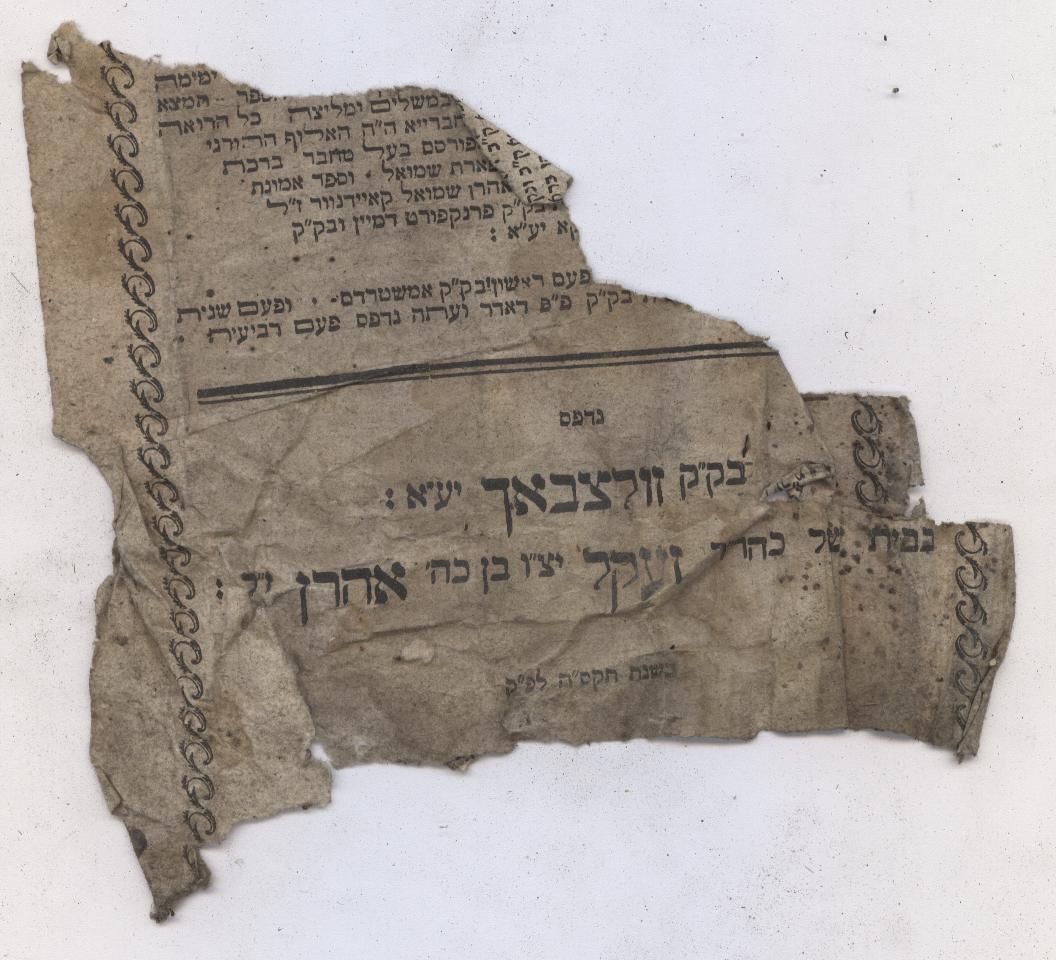 ימימה
ספר תמצא
במשלים ומליצה כל הרואה
חברייא ה"ה האלוף התורני
פורסם בעל מחבר ברכת
תפארת שמואל וספר אמונת
אהרן שמואל קאיידנוור ז"ל
בק"ק פרנקפורט דמיין ובק"ק
יע"א :
פעם ראשון בק"ק אמשטרדם ופעם שנית
בק"ק פ"פ דאדר ועתה נדפס פעם רביעית
נדפס
בק"ק זולצבאך יע"א :
בבית של כהר"ר זעקל יצ"ו בן כה' אהרן ז"ל :
בשנת תקס"ה לפ"ק